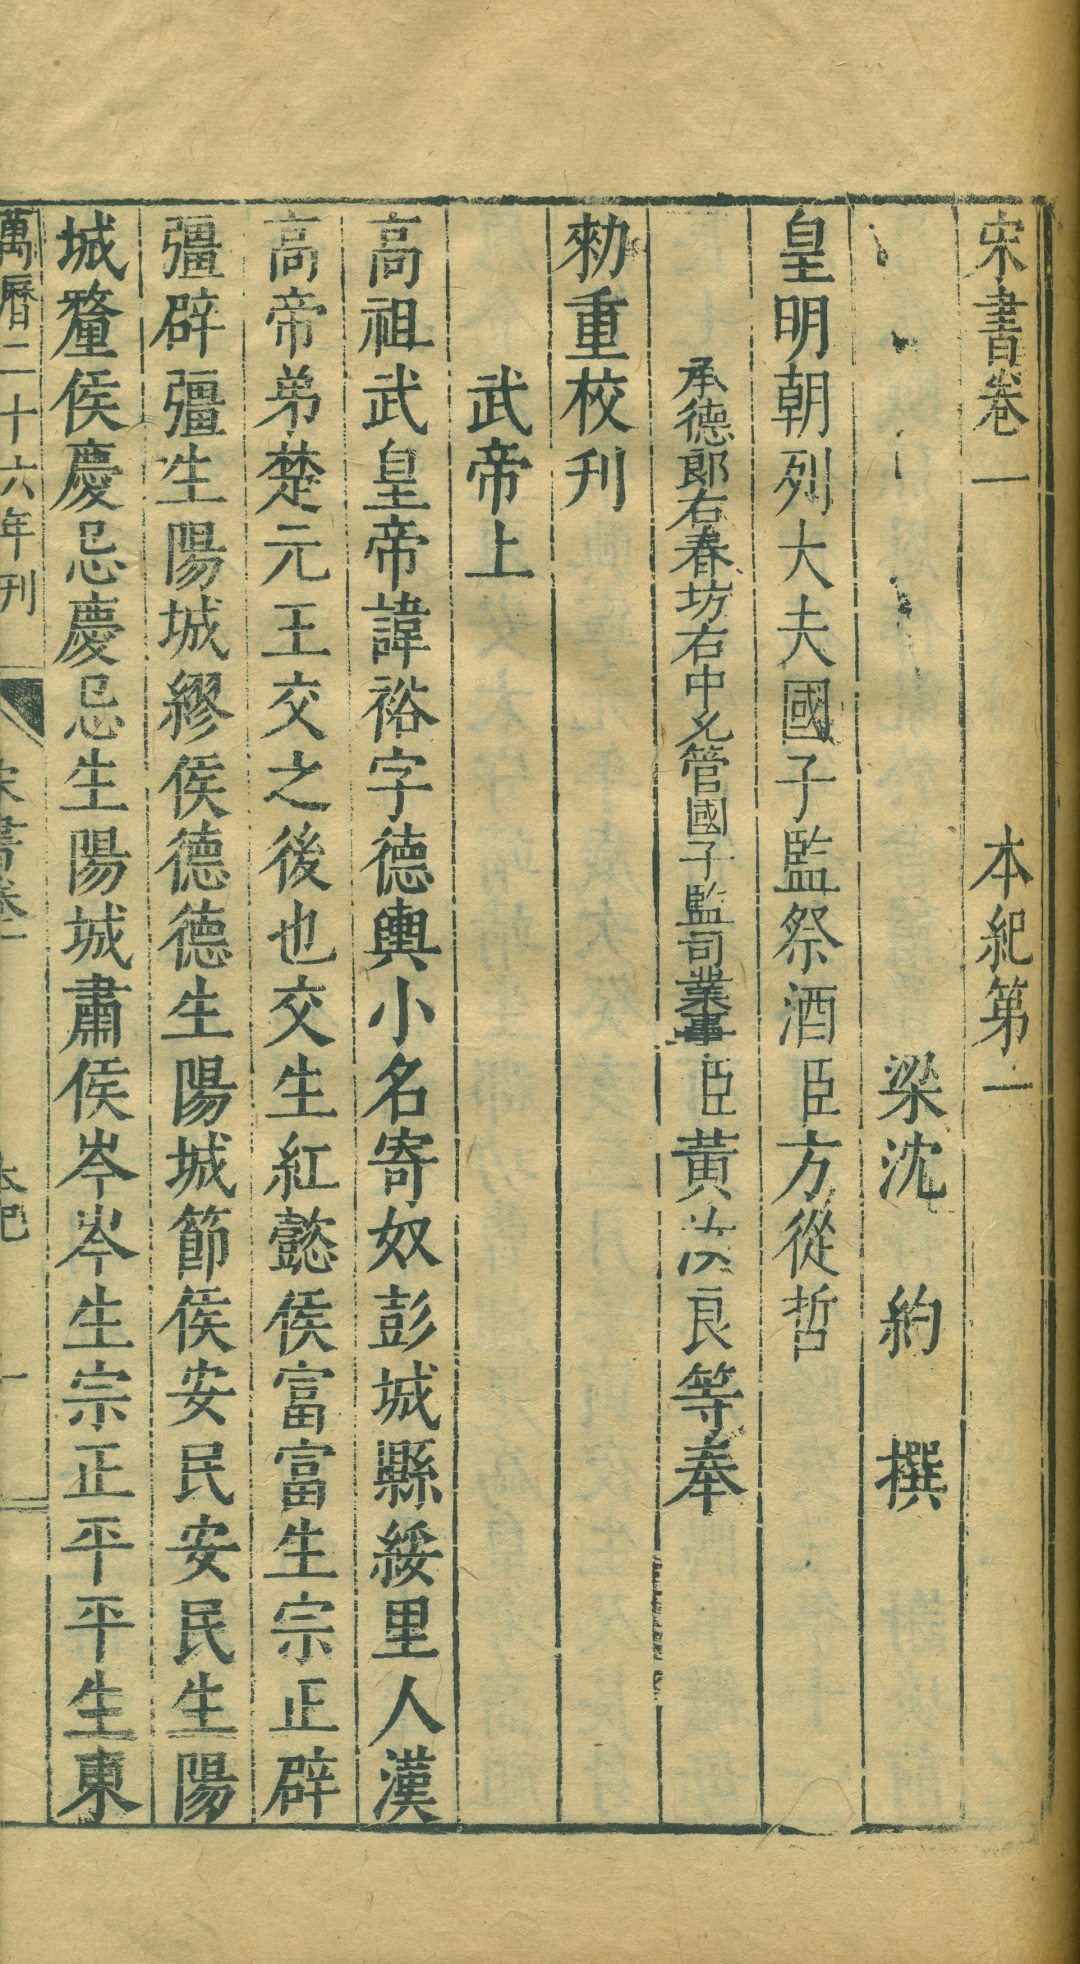 宋書卷一 本紀第一
梁沈 約 撰
皇明朝列大夫國子監祭酒臣方從哲
承德郎右春坊右中允管國子監司業事臣黃汝良等奉
勑重校刊
武帝上
高祖武皇帝諱裕字德輿小名寄奴彭城縣綏里人漢
高帝弟楚元王交之後也交生紅懿侯富富生宗正辟
彊辟彊生陽城繆侯德德生陽城節侯安民安民生陽
城釐侯慶忌慶忌生陽城肅侯岑岑生宗正平平生東
萬曆二十六年刊 宋書卷一 本紀 一